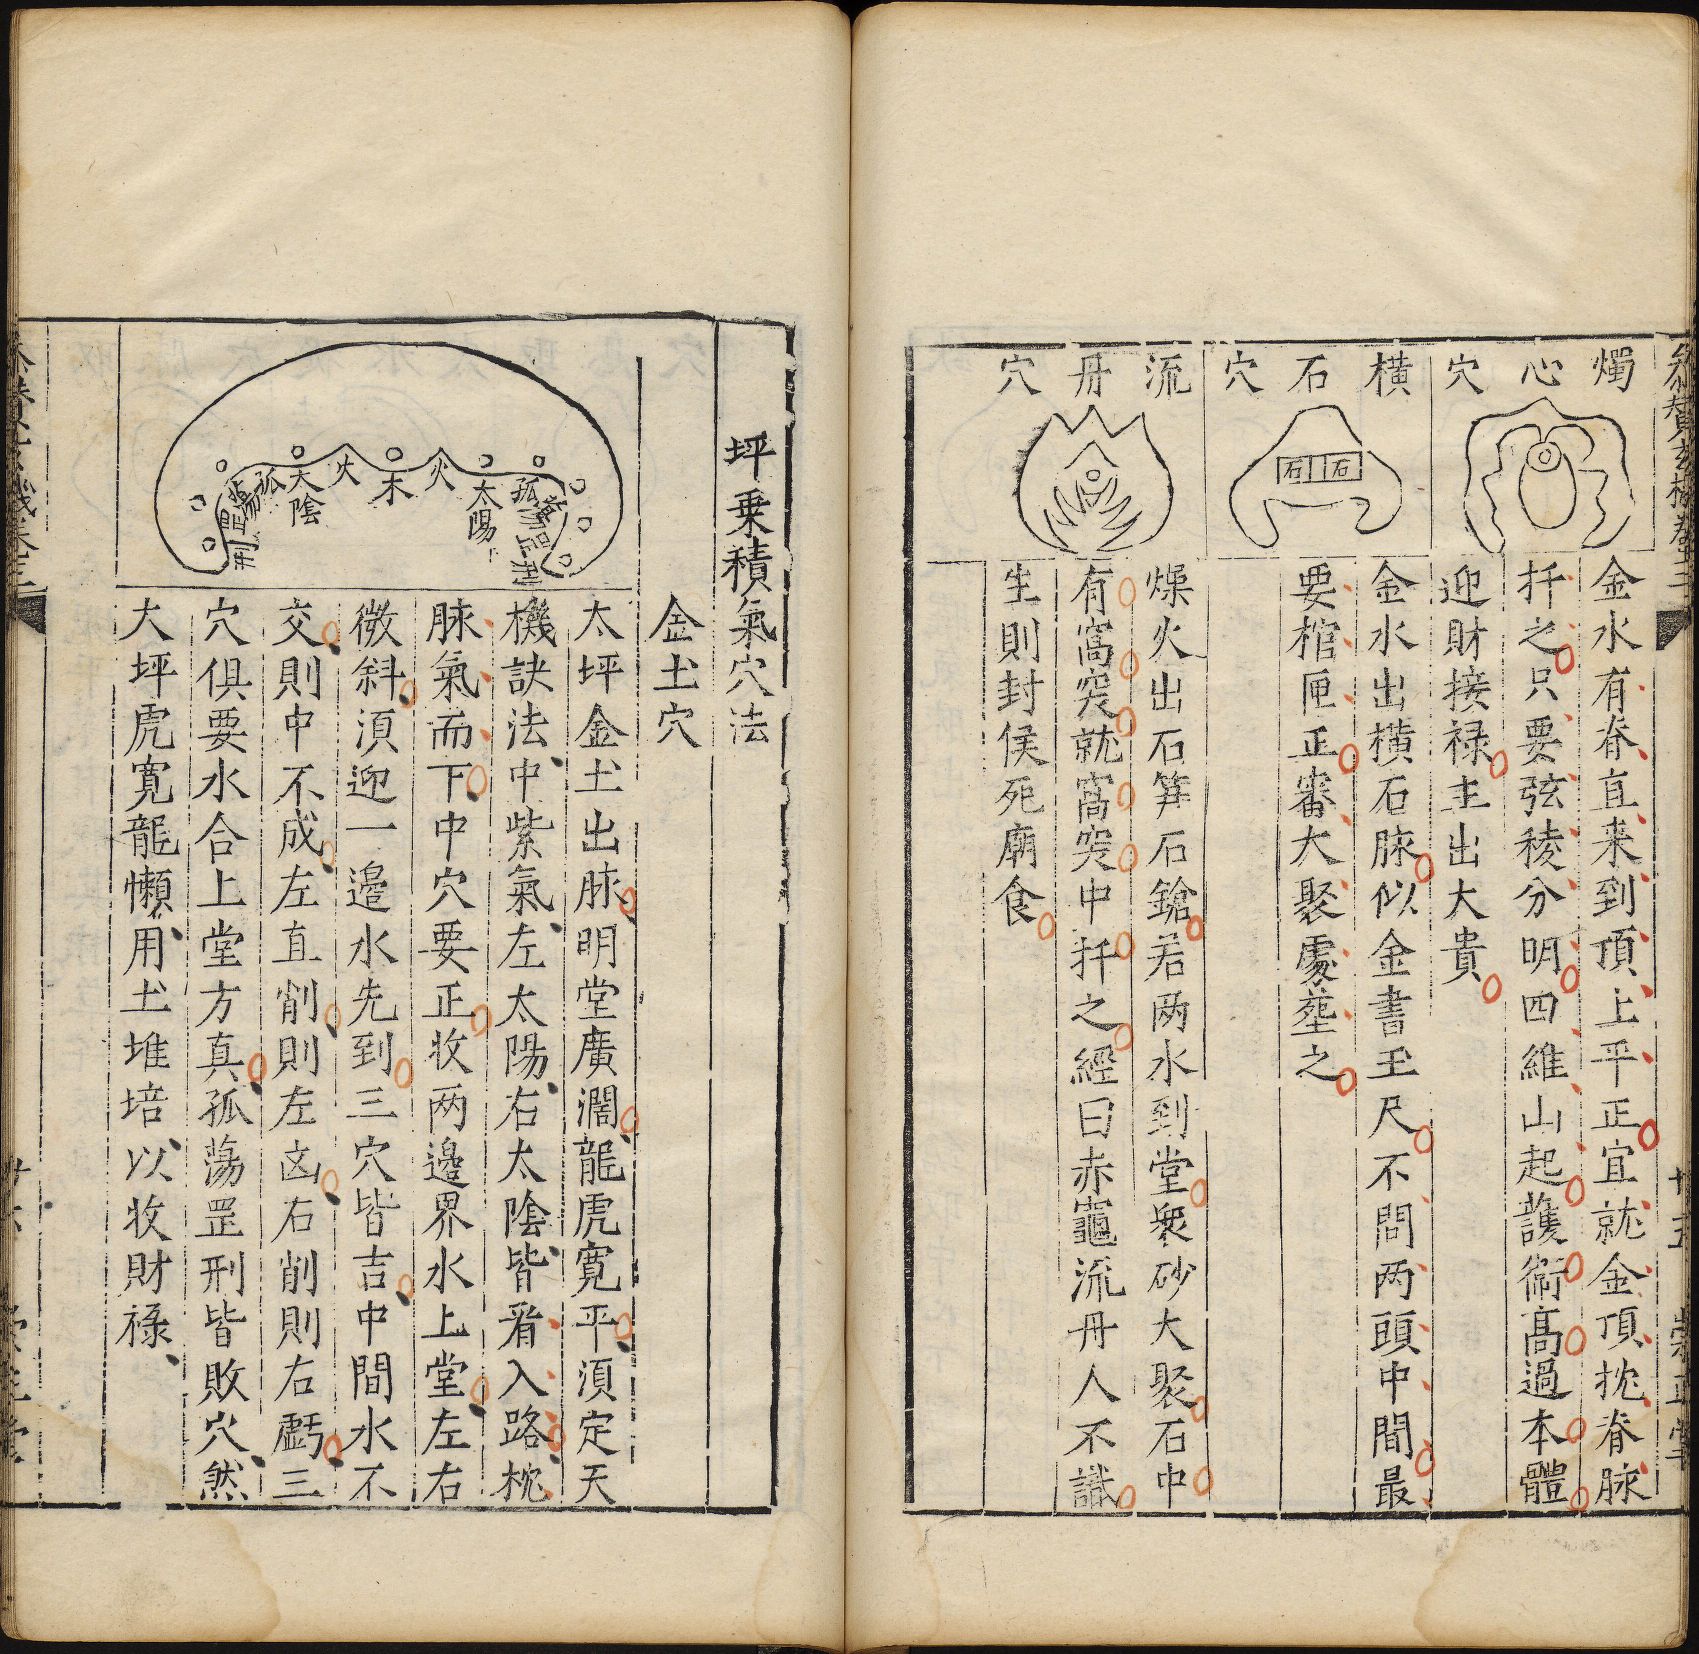 參贊玄機卷三
十五
崇正堂
燭心穴
金水有脊直来到頂上平正宜就金頂枕脊脉
扦之只要弦稜分明四維山起護衛髙過本體
迎財接禄主出大貴
橫石穴
石
石
金水出橫石脉似金書玉尺不問两頭中間最
要棺匣正審大聚處塟之
流丹穴
燥火出石笋石鎗若两水到堂衆砂大聚石中
有窩突就窩突中扦之經曰赤竈流丹人不識
生則封侯死廟食
坪乗積氣穴法
金土穴
太陽
火
木
火
太陰
孤
太坪金土出脉明堂廣濶龍虎寛平湏定天
機訣法中紫氣左太陽右太陰皆看入路枕
脉氣而下中穴要正收两邉界水上堂左右
微斜湏迎一邉水先到三穴皆吉中間水不
交則中不成左直削則左凶右削則右虧三
穴俱要水合上堂方真孤蕩罡刑皆敗穴然
大坪虎寛龍懶用土堆培以收財禄